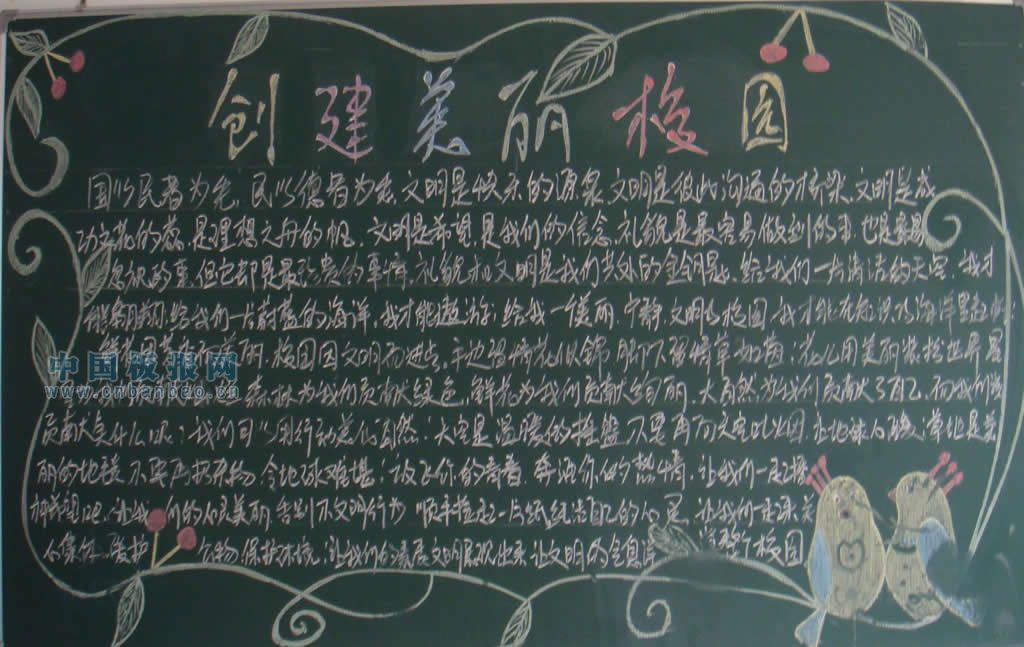 创建美丽校园
国以民为先,民以德为 文明是快乐的源泉,文明是彼此沟通的桥梁,文明是成
功之花的蕊,是理想之舟的帆,文明是希望,是我们的信念,礼貌是最容易做到的事,也是最易
忽视的事,但它却是最珍贵的事情,礼貌和文明是我们共处的金钥匙,给我们一片清洁的天空,我才
能翱翔;给我们一片蔚蓝的海洋,我才能遨游;给我一美丽、宁静、文明的校园,我才能在知识的海洋里
美丽,校园因文明而进步,手边留情花似锦,脚下留情草如茵,花儿用美丽装扮世界
中国板报网
www.cnbanbao.cn
森林为我们贡献绿色,鲜花为我们贡献绚丽,大自然为我们贡献了自己,而我们将
贡献点什么呢?我们可以用行动美化自然,天空是温暖的 不要再
丽的地毯,不要再扔弃物,令地球难堪!放飞你的青春,奔洒你的热情,让我们一起
吧,让我们的心灵美丽,告别不文明行为,顺手捡起一片纸纯洁自己的心灵,让我们一起
爱护公物,保护环境,让我们的 文明展现出来,让文明的气息 整个校园